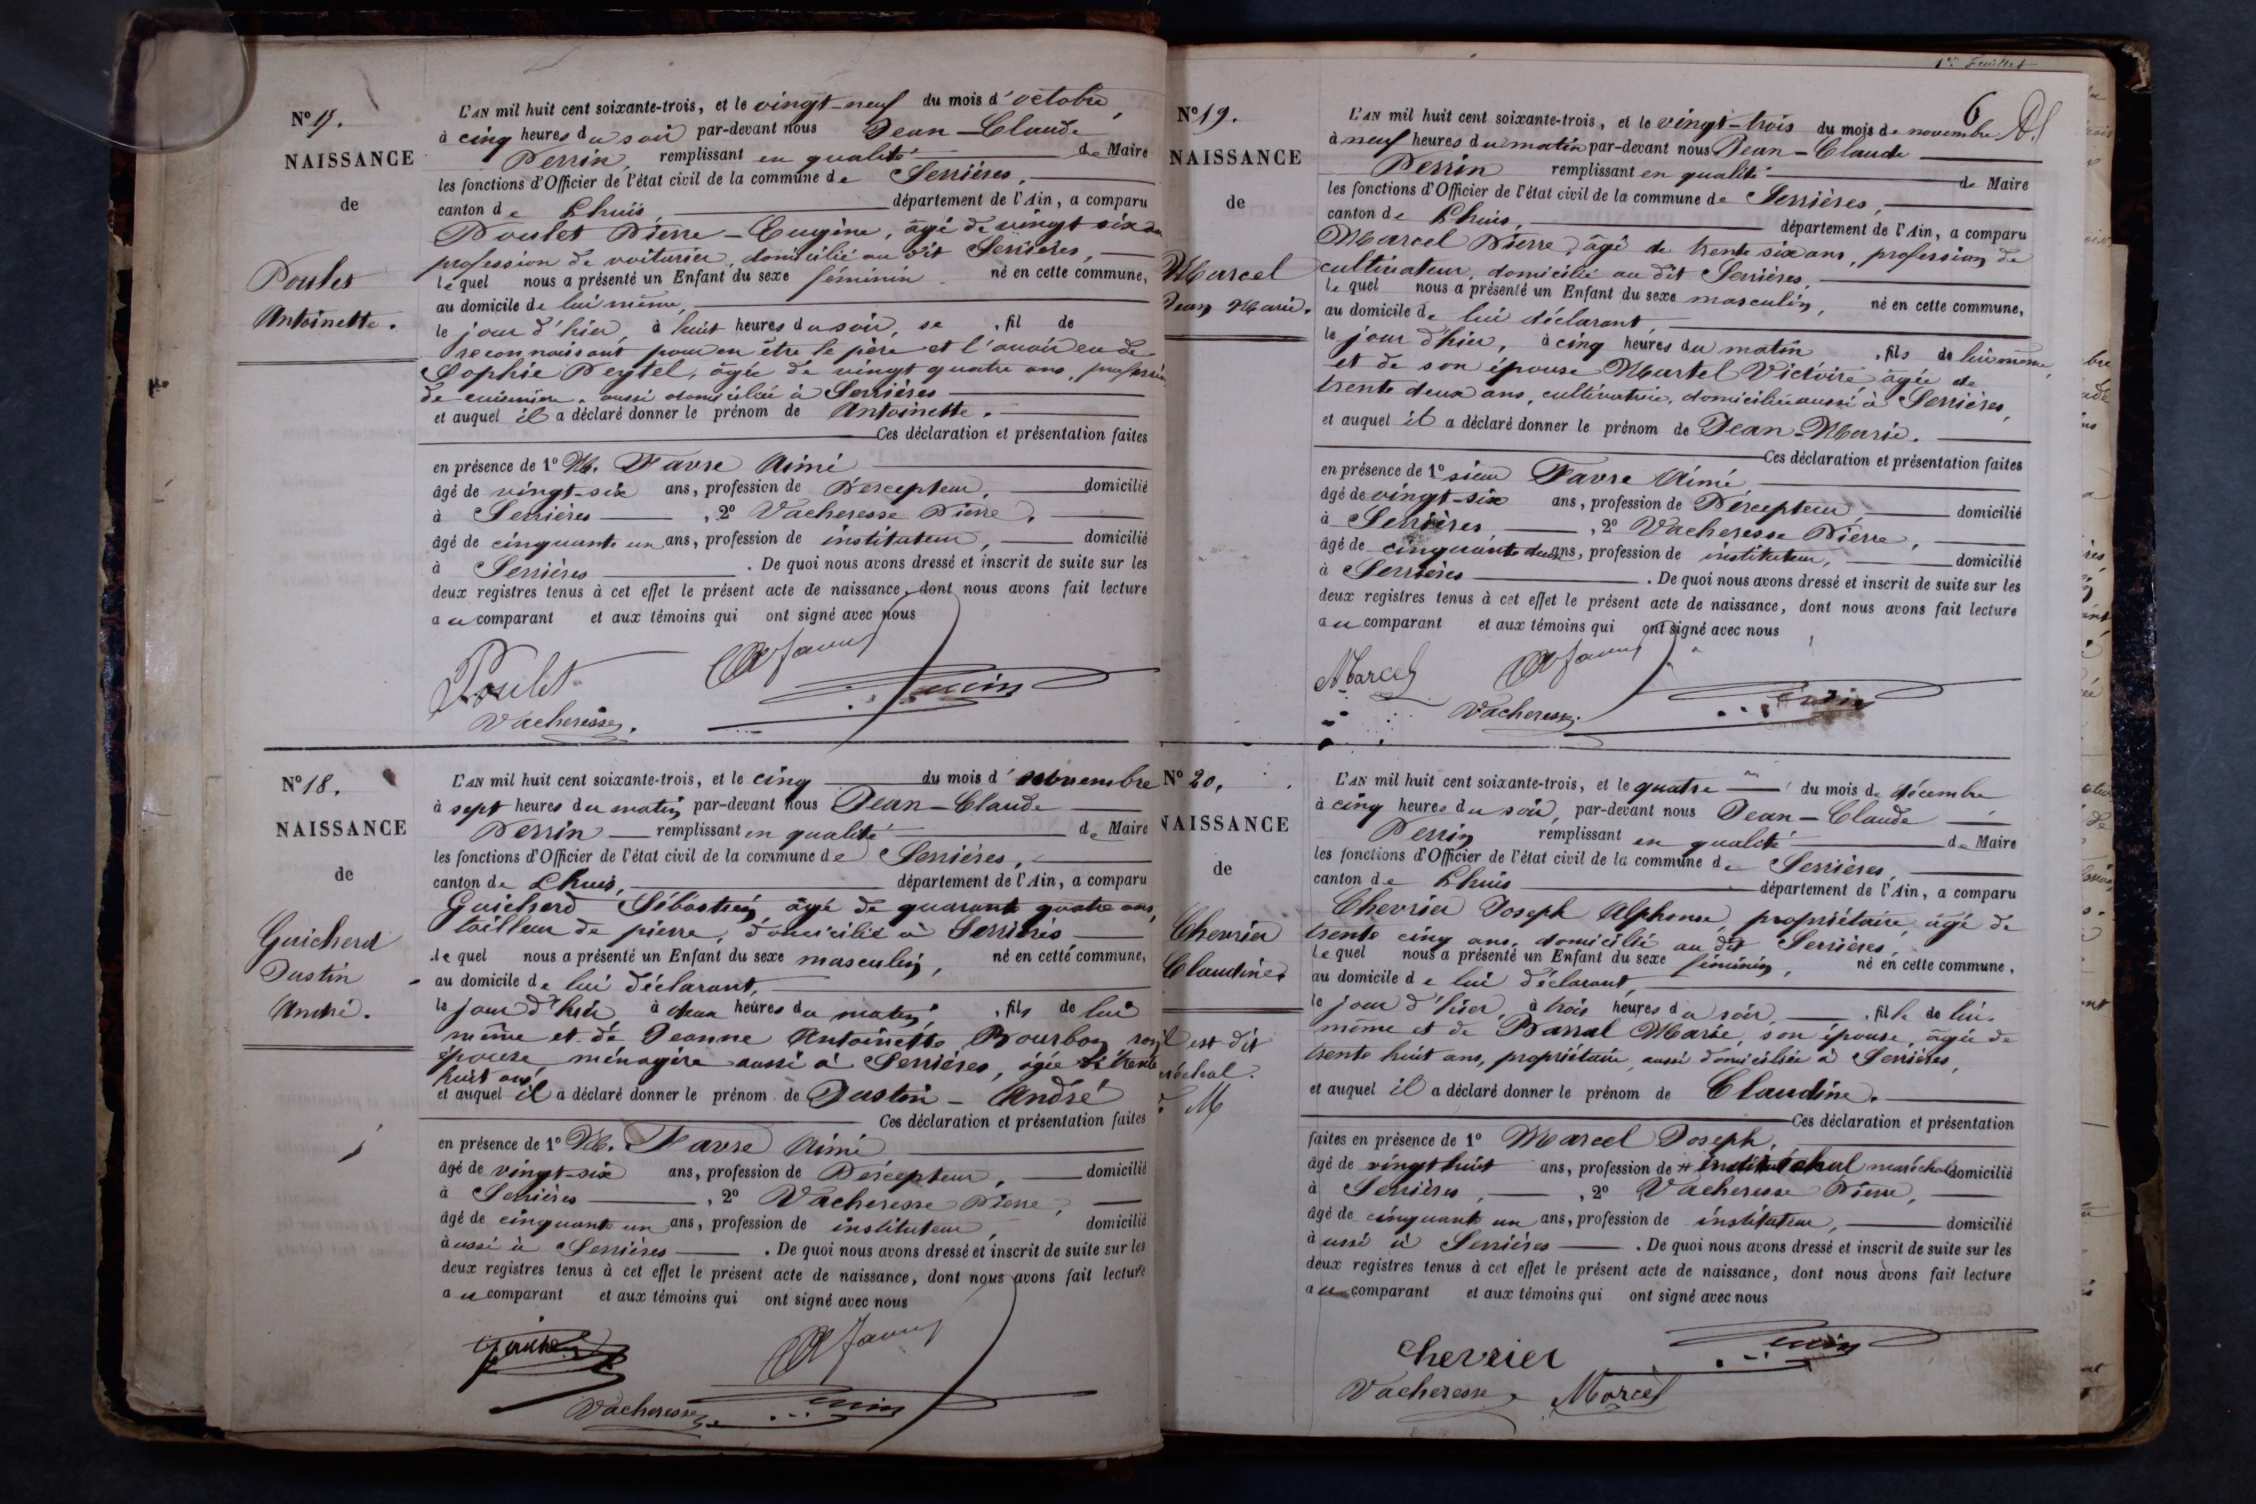 N° 17.
NAISSANCE
de
Poulet
Antoinette.
L'AN mil huit cent soixante-trois, et le vingt-neuf du mois d'octobre,
à cinq heures du soir par-devant nous Jean-Claude
Perrin, remplissant en qualité de Maire
les fonctions d'Officier de l'état civil de la commune de Serrières,
canton de Lhuis, département de l'Ain, a comparu
Poulet Pierre-Eugène, âgé de vingt six ans
profession de voiturier, domicilié au dit Serrières,
lequel nous a présenté un Enfant du sexe féminin né en cette commune,
au domicile de lui même,
le jour d'hier, à huit heures du soir, se , fil de
reconnaissant pour en être le père et l'avoir eu de
Sophie Peytel, âgée de vingt quatre ans, profession
de cuisinière, aussi domiciliée à Serrières
et auquel il a déclaré donner le prénom de Antoinette.
Ces déclaration et présentation faites
en présence de 1° M. Favre Aimé
âgé de vingt-six ans, profession de Percepteur, domicilié
à Serrières , 2° Vacheresse Pierre,
âgé de cinquante un ans, profession de instituteur, domicilié
à Serrières . De quoi nous avons dressé et inscrit de suite sur les
deux registres tenus à cet effet le présent acte de naissance, dont nous avons fait lecture
au comparant et aux témoins qui ont signé avec nous
Poulet Favre
Vacheresse Perrin
N° 18.
NAISSANCE
de
Guicherd
Justin
André.
L'AN mil huit cent soixante-trois, et le cinq du mois d' novembre
à sept heures du matin par-devant nous Jean-Claude
Perrin remplissant en qualité de Maire
les fonctions d'Officier de l'état civil de la commune de Serrières,
canton de Lhuis, département de l'Ain, a comparu
Guicherd Sébastien, âgé de quarante quatre ans,
tailleur de pierre, domicilié à Serrières
lequel nous a présenté un Enfant du sexe masculin, né en cette commune,
au domicile de lui déclarant,
le jour d'hier à deux heures du matin, , fils de lui
même et de Jeanne Antoinette Bourbon son
épouse ménagère aussi à Serrières, âgée de trente
huit ans
et auquel il a déclaré donner le prénom de Justin - André
Ces déclaration et présentation faites
en présence de 1° M. Favre Aimé
âgé de vingt-six ans, profession de Percepteur, domicilié
à Serrières , 2° Vacheresse Pierre,
âgé de cinquante un ans, profession de instituteur, domicilié
aussi à Serrières . De quoi nous avons dressé et inscrit de suite sur les
deux registres tenus à cet effet le présent acte de naissance, dont nous avons fait lecture
au comparant et aux témoins qui ont signé avec nous
Favre
Vacheresse Perrin
1er Feuillet
6
N° 19.
NAISSANCE
de
Marcel
Jean Marie.
L'AN mil huit cent soixante-trois, et le vingt-trois du mois de novembre
à neuf heures du matin par-devant nous Jean-Claude
Perrin remplissant en qualité de Maire
les fonctions d'Officier de l'état civil de la commune de Serrières,
canton de Lhuis, département de l'Ain, a comparu
Marcel Pierre, âgé de trente six ans, profession de
cultivateur, domicilié au dit Serrières,
lequel nous a présenté un Enfant du sexe masculin, né en cette commune,
au domicile de lui déclarant,
le jour d'hier, à cinq heures du matin , fils de lui même,
et de son épouse Martel Victoire âgée de
trente deux ans, cultivatrice, domiciliée aussi à Serrières,
et auquel il a déclaré donner le prénom de Jean-Marie.
Ces déclaration et présentation faites
en présence de 1° sieur Favre Aimé
âgé de vingt-six ans, profession de Percepteur domicilié
à Serrières , 2° Vacheresse Pierre,
âgé de cinquante deux ans, profession de instituteur, domicilié
à Serrières . De quoi nous avons dressé et inscrit de suite sur les
deux registres tenus à cet effet le présent acte de naissance, dont nous avons fait lecture
au comparant et aux témoins qui ont signé avec nous
Marcel Favre
Vacheresse Perrin
N° 20.
NAISSANCE
de
Chevrier
Claudine
est dit
L'AN mil huit cent soixante-trois, et le quatre du mois de décembre
à cinq heures du soir, par-devant nous Jean-Claude
Perrin remplissant en qualité de Maire
les fonctions d'Officier de l'état civil de la commune de Serrières,
canton de Lhuis département de l'Ain, a comparu
Chevrier Joseph Alphonse, propriétaire, âgé de
trente cinq ans, domicilié au dit Serrières,
lequel nous a présenté un Enfant du sexe féminin, né en cette commune,
au domicile de lui déclarant,
le jour d'hier, à trois heures du soir , fille de lui-
même et de Barral Marie, son épouse, âgée de
trente huit ans, propriétaire, aussi domiciliée à Serrières,
et auquel il a déclaré donner le prénom de Claudine.
Ces déclaration et présentation
faites en présence de 1° Marcel Joseph,
âgé de vingt huit ans, profession de maréchal domicilié
à Serrières, , 2° Vacheresse Pierre,
âgé de cinquante un ans, profession de instituteur, domicilié
aussi à Serrières . De quoi nous avons dressé et inscrit de suite sur les
deux registres tenus à cet effet le présent acte de naissance, dont nous avons fait lecture
au comparant et aux témoins qui ont signé avec nous
Chevrier Perrin
Vacheresse Marcel